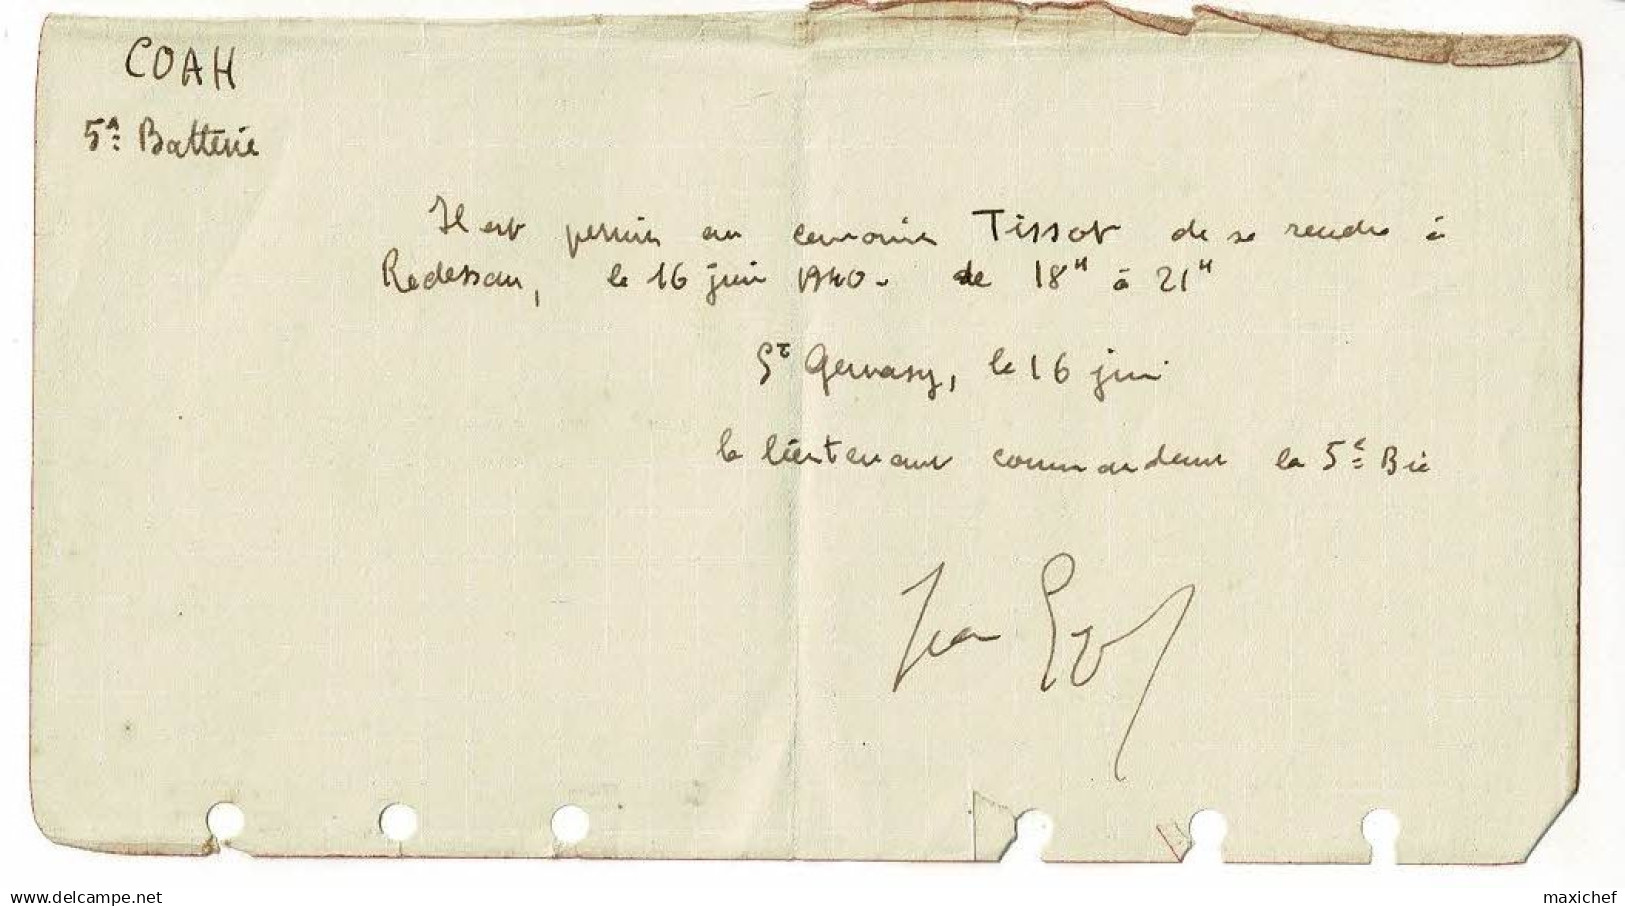 COAH
5e Batterie
Il est permis au canonnier Tissot de se rendre à
Redessan, le 16 juin 1940. de 18H à 21H
St Gervasy, le 16 juin
le lieutenant commandant la 5e Bie
Jean
www.delcampe.net
maxichef